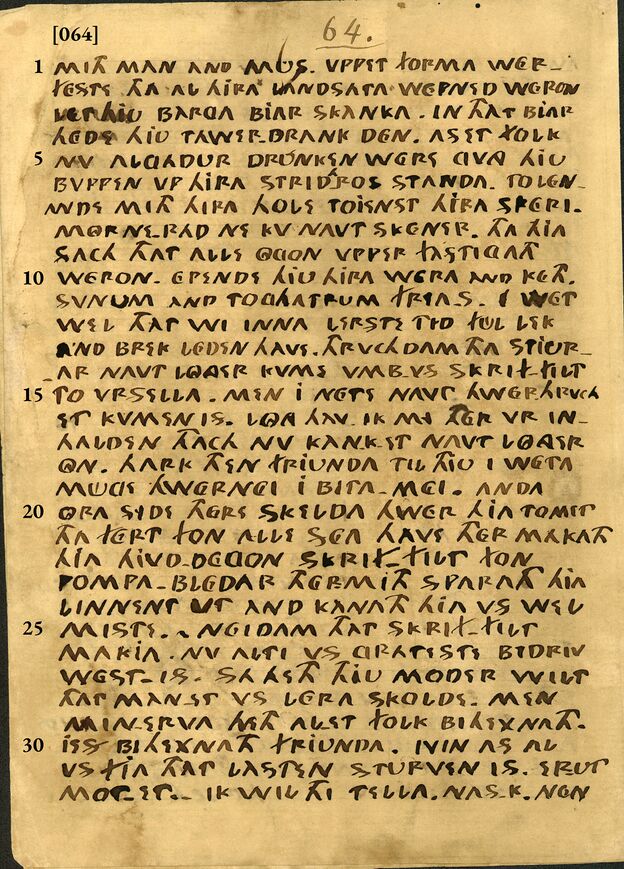 [064]
64.
1 MITH MAN AND MUS. UPPET FORMA WER-
FESTE THA AL HIRA LANDSATA WEPNED WERON
LET HIU BARGA BIAR SKANKA. IN THAT BIAR
HEDE HIU TAWER-DRANK DEN. AS ET FOLK
5 NV ALGADUR DRUNKEN WERE GVNG HIU
BVPPEN VP HIRA STRIDROS STANDA. TO LEN-
ANDE MITH HIRA HOLE TOIENST HIRA SPERI.
MORNE-RAD NE KV NAVT SKENER. THA HIA
SACH THAT ALLE OGON VPPER FASTIGATH
10 WERON. EPENDE HIU HIRA WERA AND KETH.
SVNUM AND TOGHATRUM FRIA-S. I WET
WEL THAT WI INNA LERSTE TID FUL LEK
AND BREK LEDEN HAVE. THRUCHDAM THA STIUR-
AR NAVT LONGER KVME VMB VS SKRIF-FILT
15 TO VRSELLA. MEN I NETE NAVT HWERTHRUCH
ET KVMEN IS. LONG HAV IK MI THER VR IN-
HALDEN THACH NV KAN-K-ET NAVT LONGER
ON. HARK THEN FRIUNDA TIL THIU I WETA
MUGE HWERNEI I BITA MEI. ANDA
20 ORA SYDE THERE SKELDA HWER HIA TOMET
THA FERT FON ALLE SEA HAVE THER MAKATH
HIA HIVD-DEGON SKRIF-FILT FON
POMPA-BLEDAR THERMITH SPARATH HIA
LINNENT UT AND KANNATH HIA VS WEL
25 MISTE. NEIDAM THAT SKRIF-FILT
MAKIA. NV ALTI VS GRATESTE BIDRIV
WEST-IS. SA HETH THIU MODER WILT
THAT MAN-ET VS LERA SKOLDE. MEN
MINERVA HETH AL-ET FOLK BIHEXNATH.
30 IES BIHEXNATH FRIUNDA. IVIN AS AL
VS FIA THAT LASTEN STURVEN IS. ERUT
MOT-ET. IK WIL THI TELLA. NAS-K. NEN